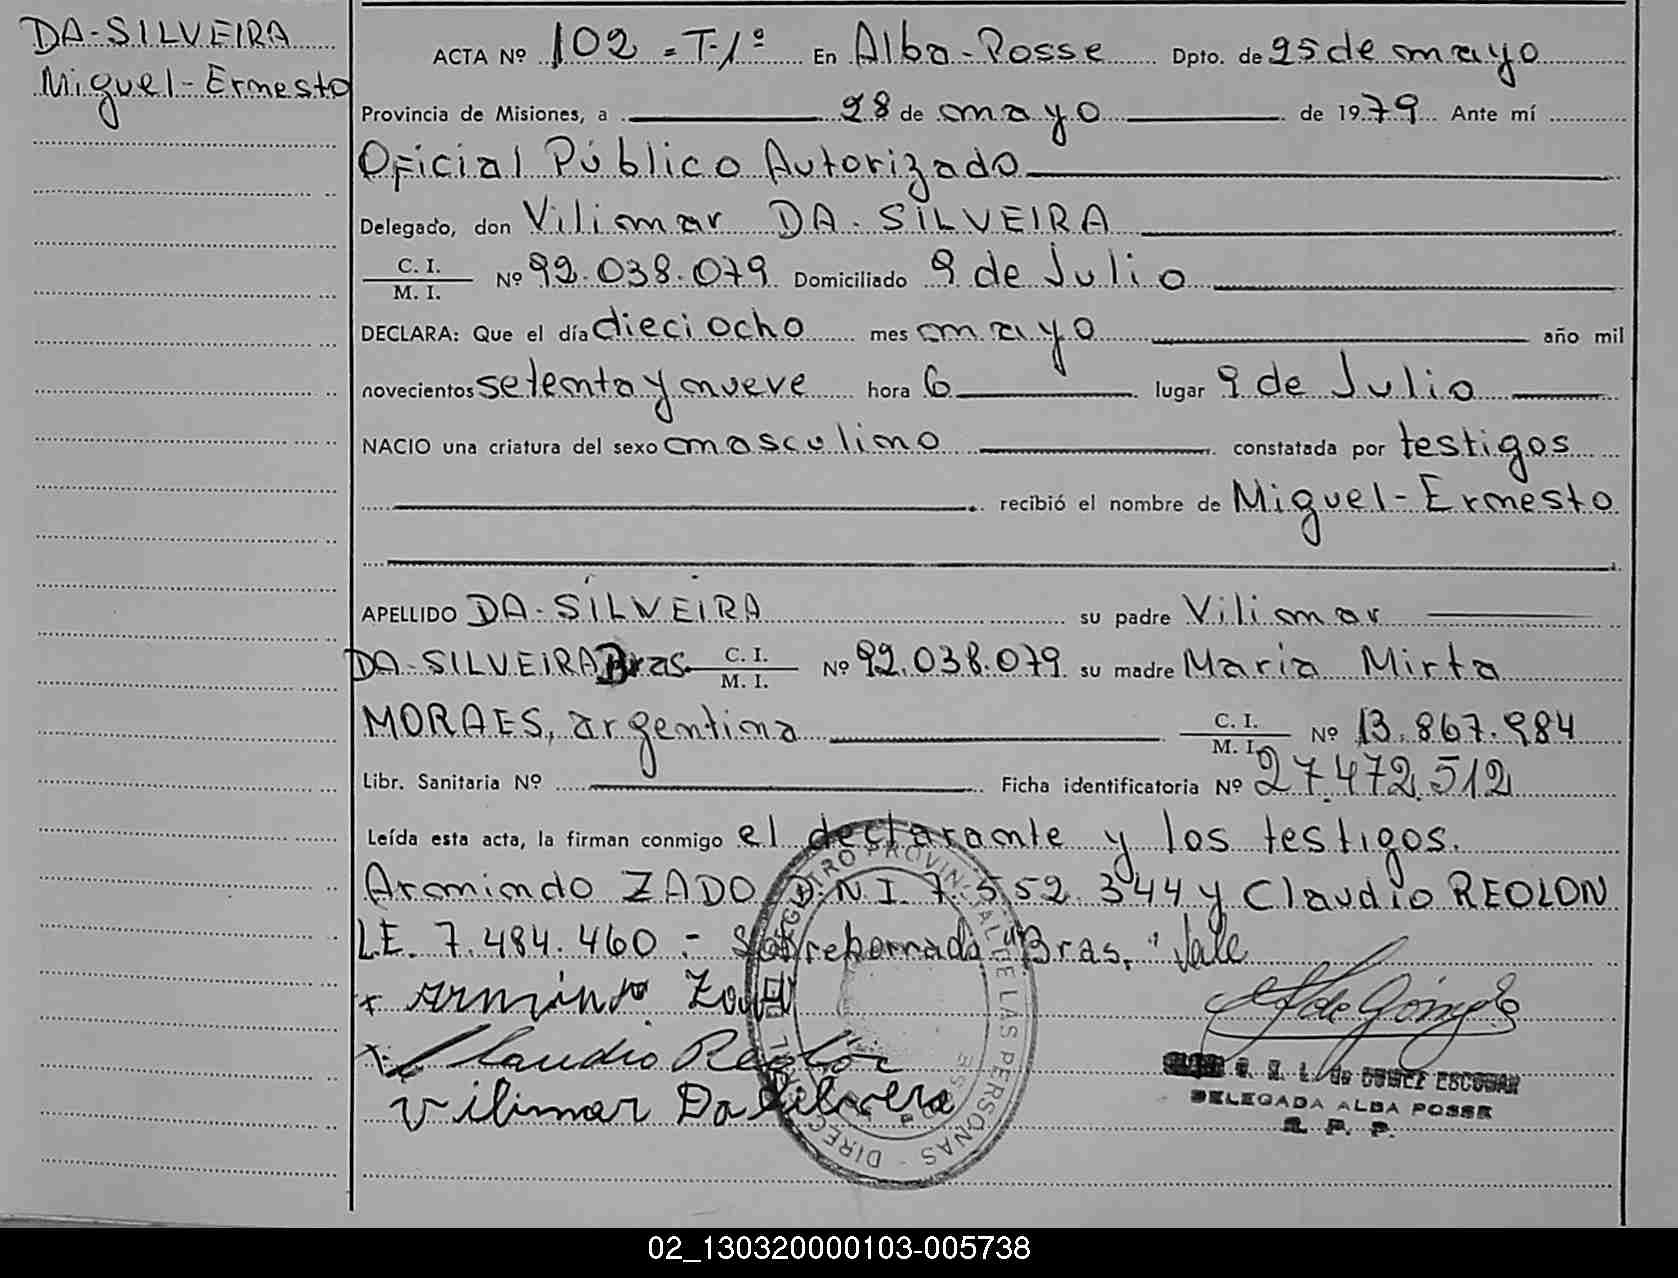 DA-SILVEIRA
Miguel-Ernesto
ACTA Nº 102 = T-1º En Alba-Posse Dpto. de 25 de mayo
Provincia de Misiones, a 28 de mayo de 1979 Ante mí
Oficial Público Autorizado
Delegado, don Vilimar DA-SILVEIRA
C. I.
M. I. Nº 92.038.079 Domiciliado 9 de Julio
DECLARA: Que el día dieciocho mes mayo año mil
novecientos setenta y nueve hora 6 lugar 9 de Julio
NACIO una criatura del sexo masculino constatada por testigos
recibió el nombre de Miguel-Ernesto
APELLIDO DA-SILVEIRA su padre Vilimar
DA-SILVEIRA Bras. C. I. M. I. Nº 92.038.079 su madre Maria Mirta
MORAES, argentina C. I. M. I. Nº 13.867.984
Libr. Sanitaria Nº Ficha identificatoria Nº 27.472.512
Leída esta acta, la firman conmigo el declarante y los testigos.
Armindo ZADO D.N.I. 7.552.344 y Claudio REOLON
L.E. 7.484.460 - Sobreborrado "Bras." Vale
Claudio Reolon
Vilimar Da Silveira
DE LAS PERSONAS
de GOMEZ ESCOBAR
DELEGADA ALBA POSSE
R. P. P.
02_130320000103-005738